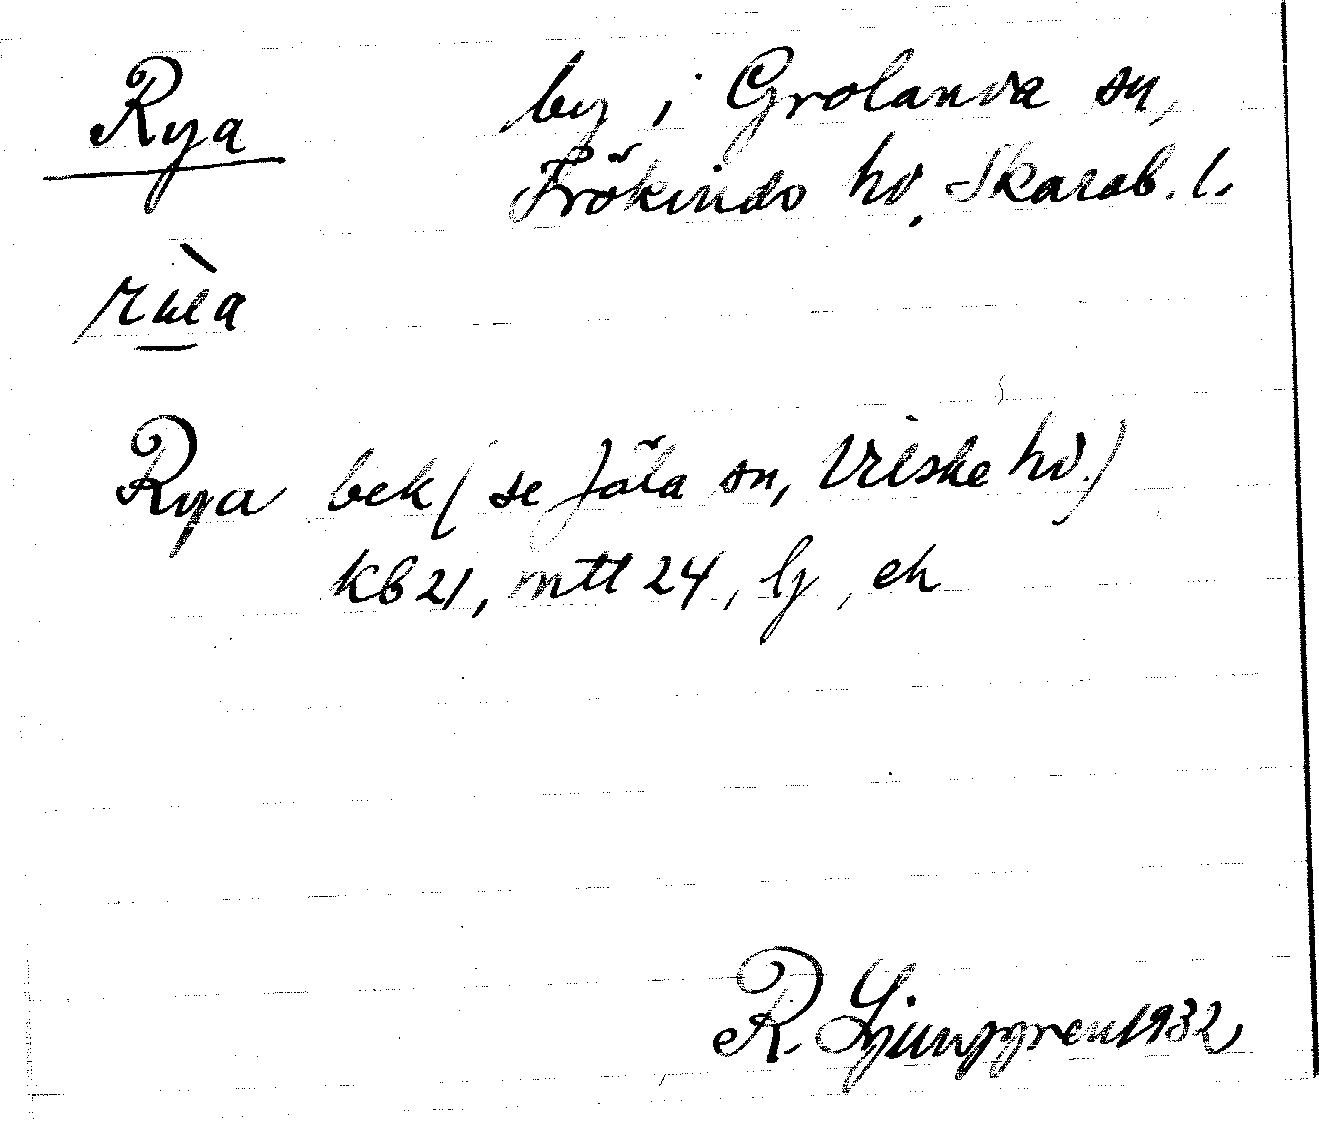 Rya by i Grolanda sn,
Frökinds hd, Skarab. l.
Rya bek (se Jäla sn, Vilske hd.)
kb 21, mtt 24, lj, ek
R. Ljunggren 1932